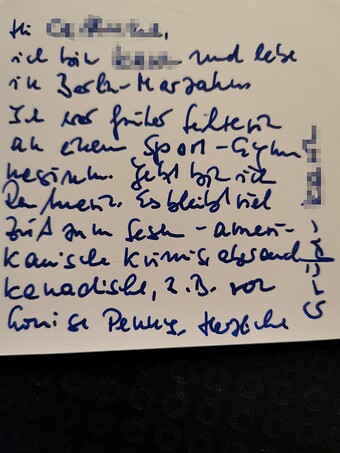 Hi
ich bin und lebe
in Berlin-Marzahn
Ich war früher Lehrerin
an einem Sport-Gym
nasium. Jetzt bin ich
Rentnerin. Es bleibt viel
Zeit zum Lesen - ameri-
kanische Krimis aber auch
kanadische, z.B. von
Louise Penny. Herzliche
Grüße